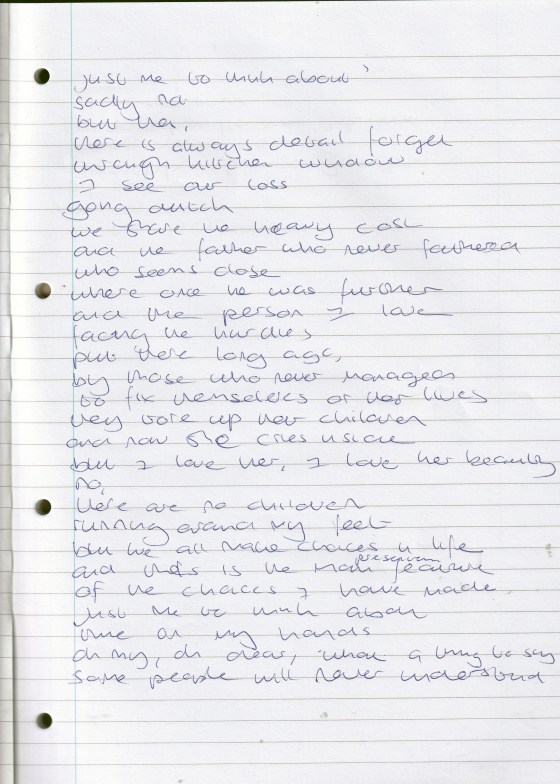 just me to think about
sadly no
but then,
there is always detail forget
through kitchen window
I see our loss
going dutch
we share the heavy cost
and the father who never fathered
who seems close
where once he was further
and the person I love
facing the hurdles
put there long ago,
by those who never managed
to fix themselves or their lives
they tore up their children
and now she cries inside
but I love her, I love her beauty
no,
there are no children
running around my feet
but we all make choices in life
and that's is the main feature
of the choices I have made
just me to think about
time on my hands
oh my, oh dear, what a thing to say
some people will never understand